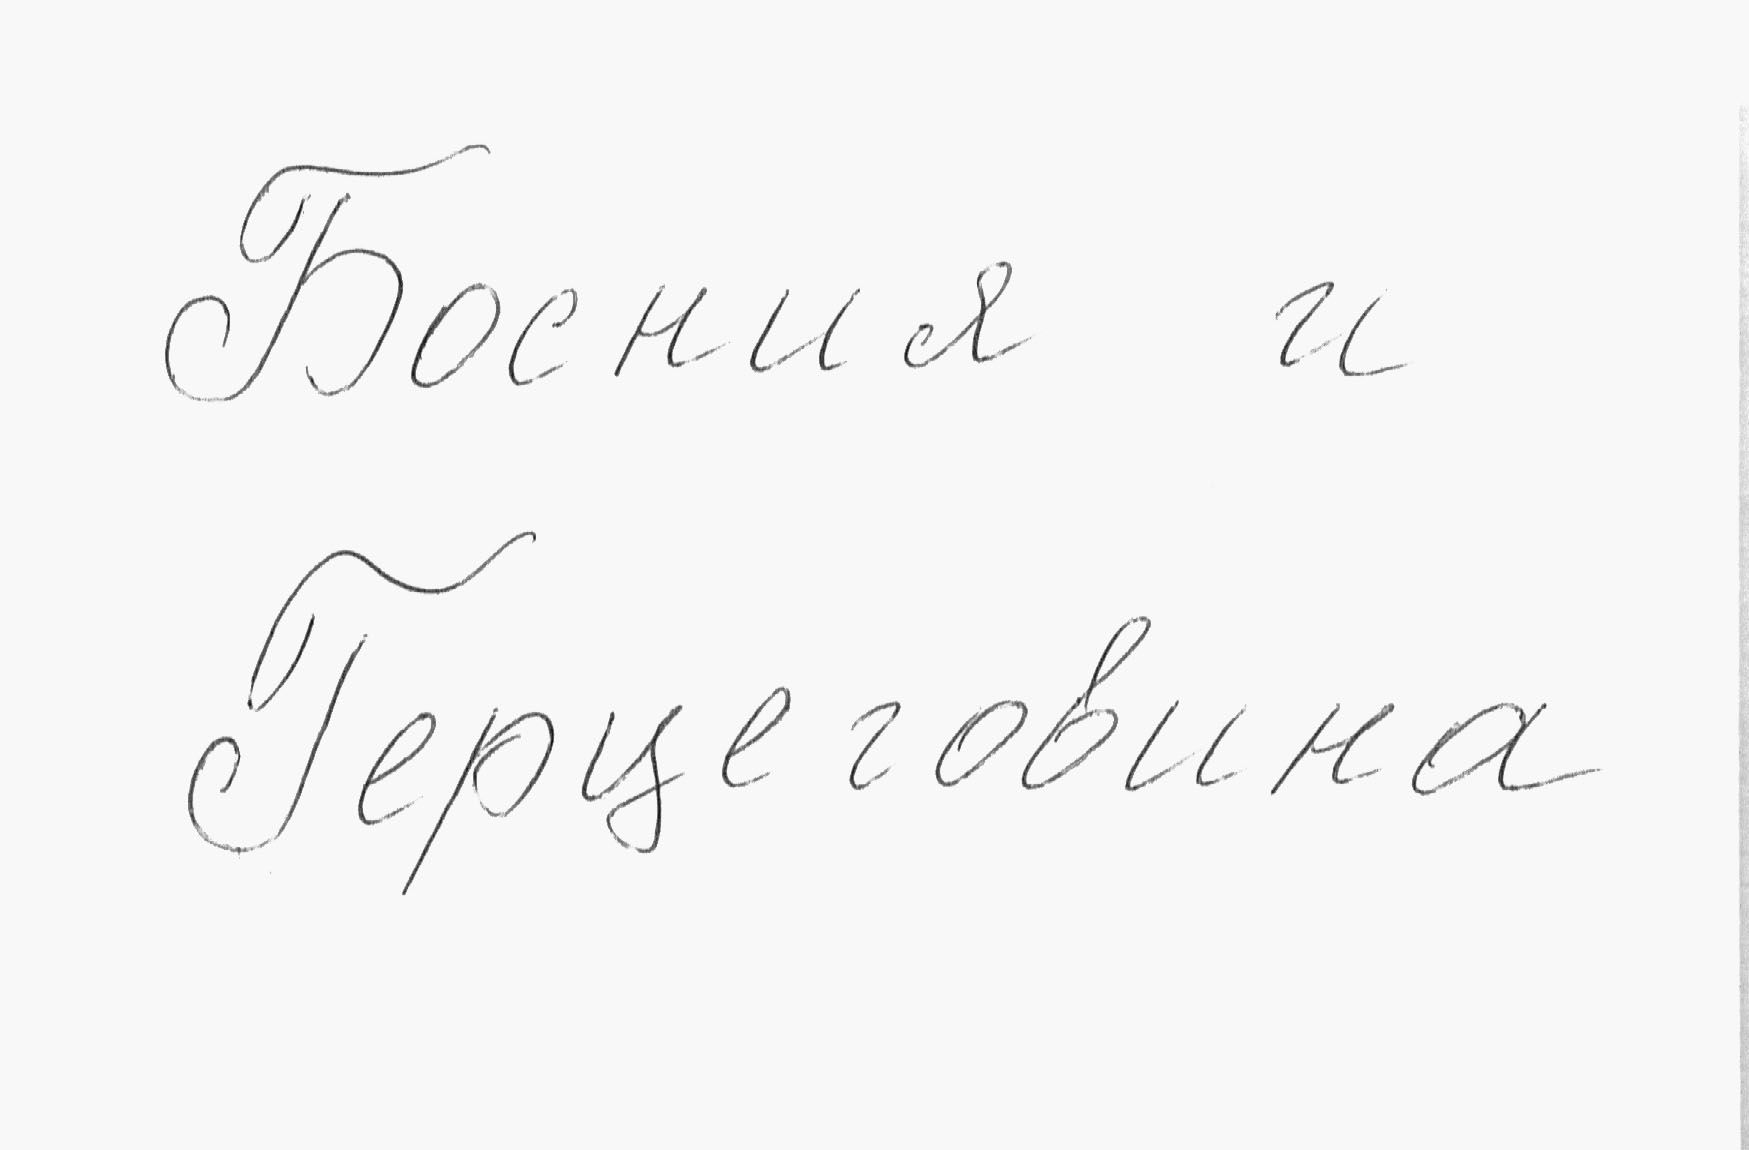 Босния и
Герцеговина